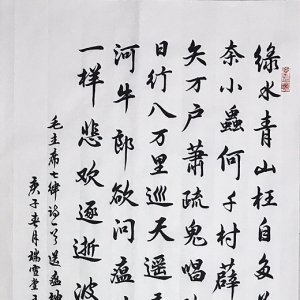 綠水青山枉自多
奈小蟲何千村薜
矢万戶蕭疏鬼唱
日行八万里巡天遥
河牛郎欲问瘟
一樣悲欢逐逝波
毛主席七律詩一首送瘟神
庚子春月瑞雪堂